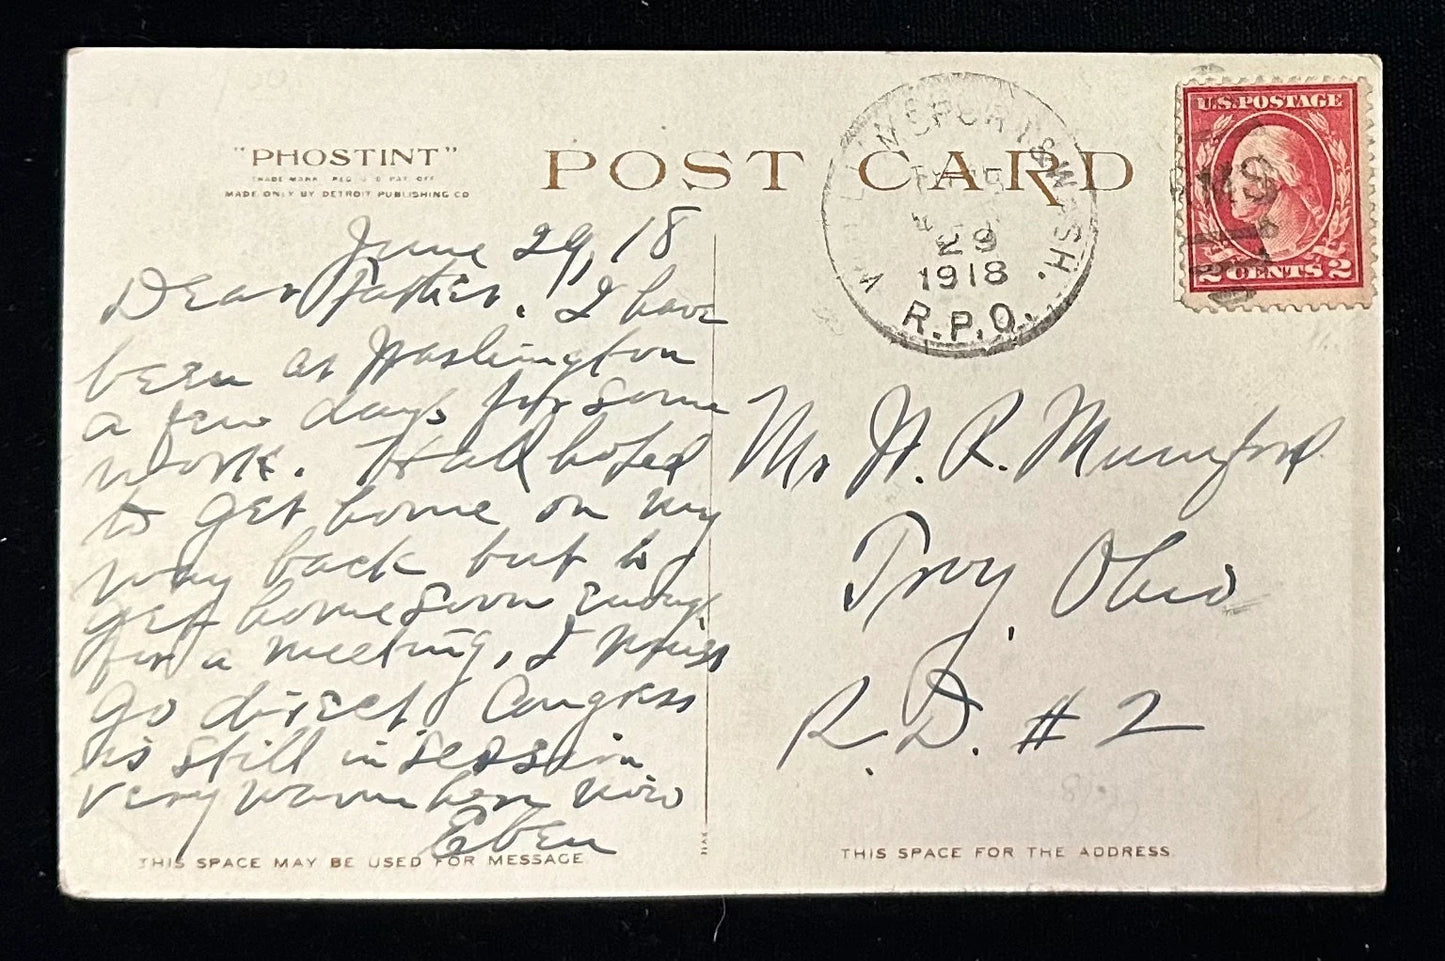 "PHOSTINT"
TRADE MARK REG. U.S. PAT. OFF.
MADE ONLY BY DETROIT PUBLISHING CO
POST CARD
WILLIAMSPORT & WASH.
29
1918
R.P.O.
U.S. POSTAGE
2 CENTS 2
RMS
June 29, 18
Dear Father. I have
been at Washington
a few days for some
work. Had hoped
to get home on my
way back but to
get home soon enough
for a meeting, I must
go direct. Congress
is still in session
very warm here now
Eben
Mr
R. Mumford
Troy, Ohio
R. D. # 2
THIS SPACE MAY BE USED FOR MESSAGE.
THIS SPACE FOR THE ADDRESS.